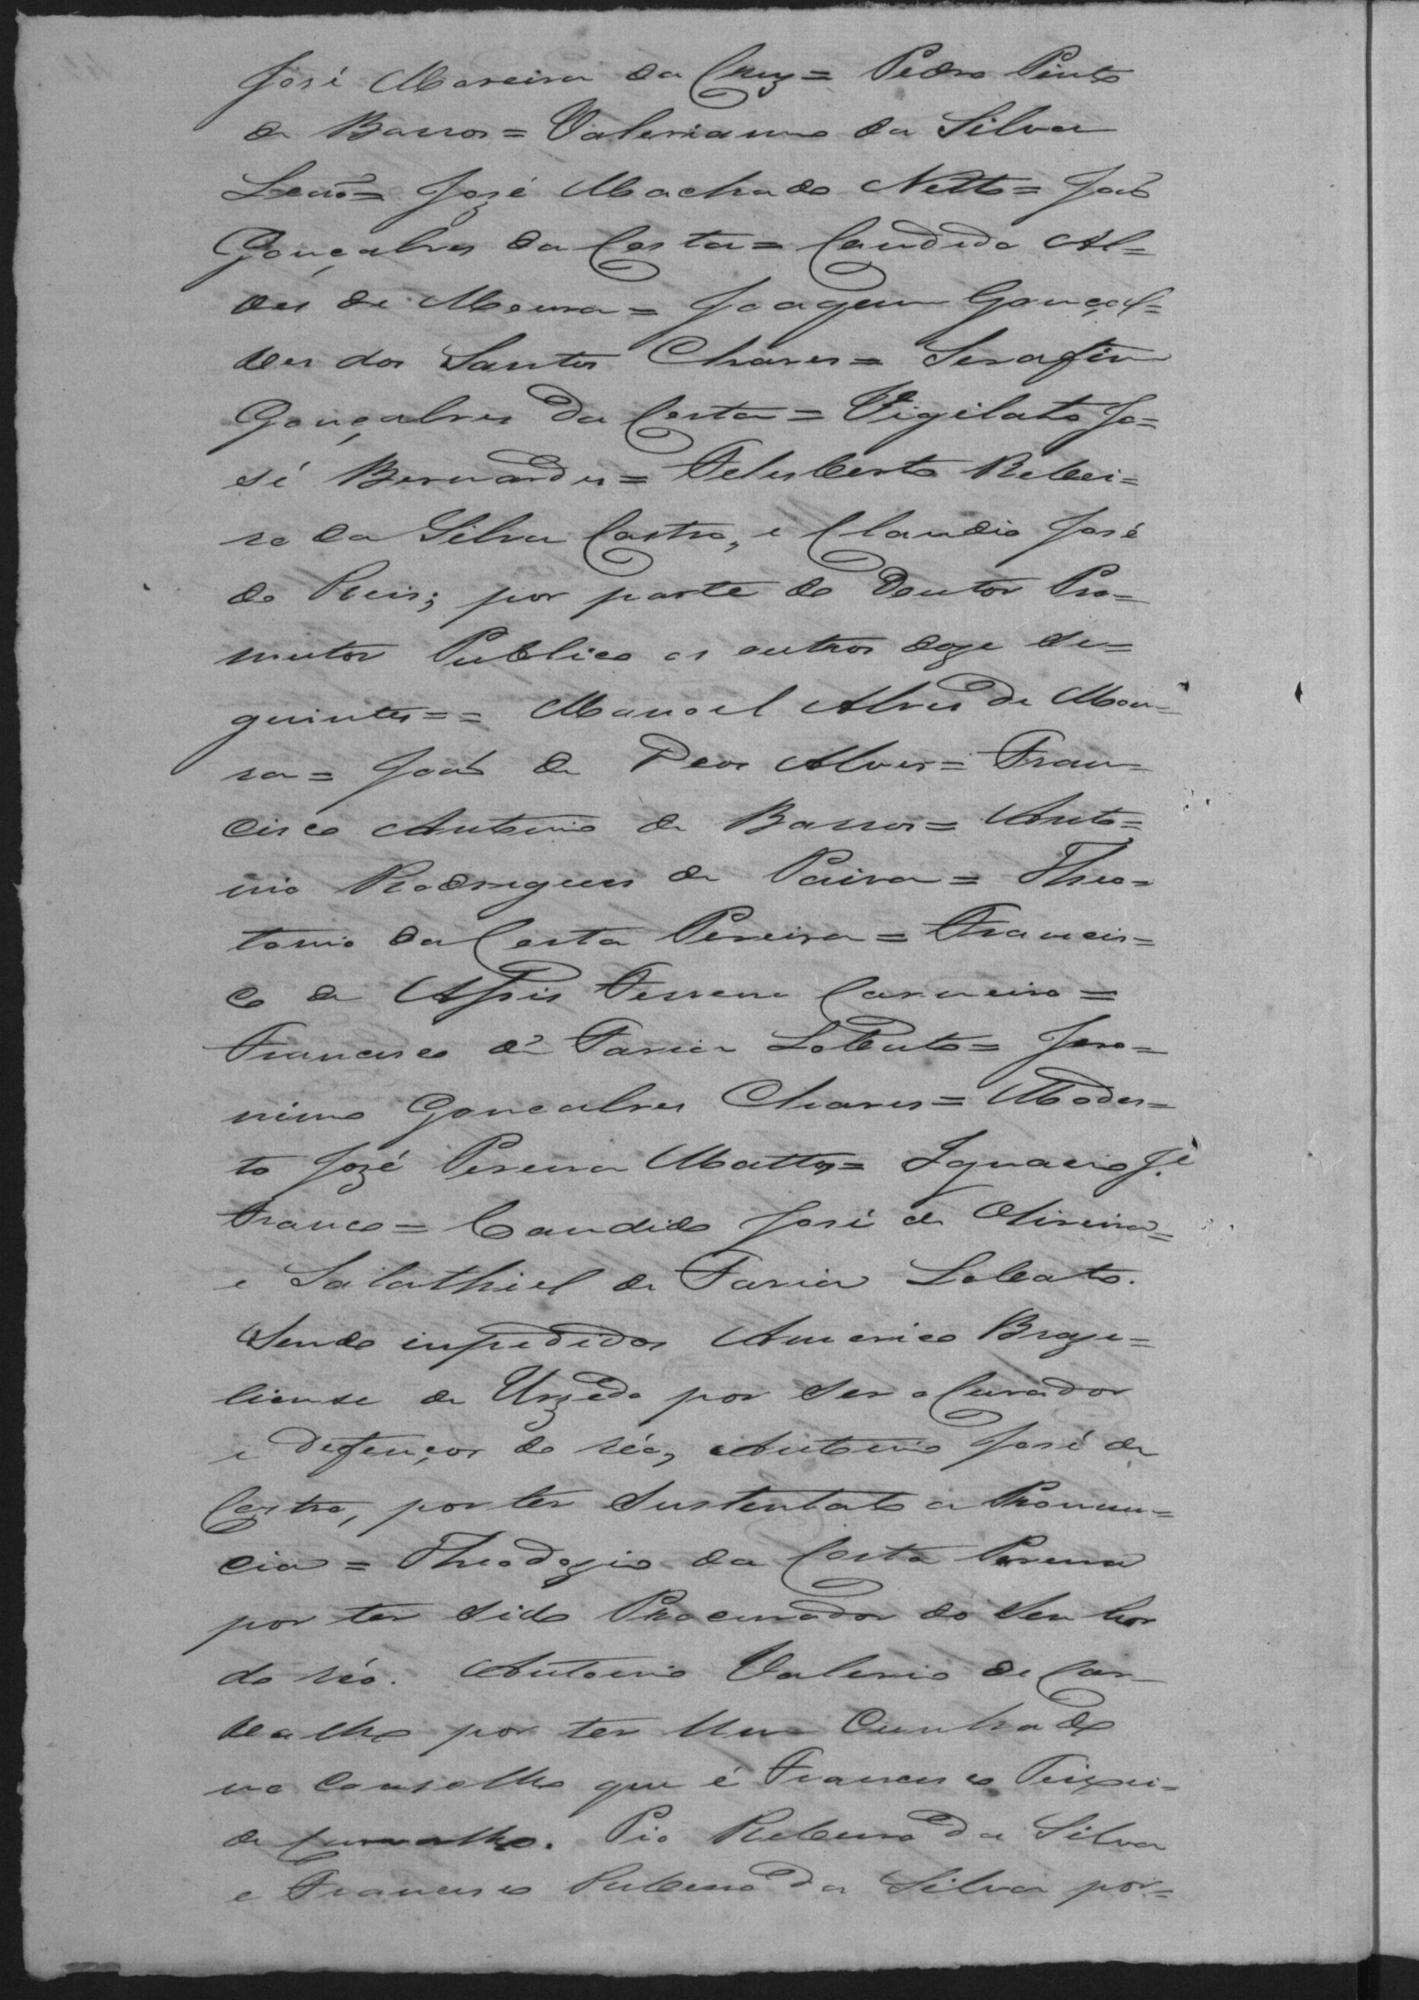 José Moreira da Cruz = Pedro Pinto
de Barros = Valerianno da Silva
Leaõ = Jozé Machado Netto = Joaõ
Gonçalves da Costa = Candido Al=
ves de Moura = Joaquim Gonçal=
ves dos Santos Chaves = Serafim
Gonçalves da Costa = Vigilato Jo=
sé Bernardes = Felisberto Ribei=
ro da Silva Castro, e Claudio José
do Reis; por parte do Doutor Pro=
mutor Publico os outros doze se=
guintes = = Manoel Alves de Mou=
ra = Joaõ de Deos Alves = Fran=
cisco Antonio de Barros = Anto=
nio Rodrigues de Paiva = Theo=
tonio da Costa Pereira = Francis=
co de Assis Ferreira Carneiro =
Francisco de Faria Lobato = Jero=
nimo Goncalves Chaves = Modes=
to Jozé Pereira Mattos = Ignacio Jé
Franco = Candido José de Oliveira =
e Salathiel de Faria Lobato.
Sendo inpedidos Americo Braze=
liense de Urzedo por ser o Curador
e defençor do réo, Antonio José de
Castro, por ter sustentado a Pronun=
cia = Theodozio da Costa Pereira
por ter sido Procurador do Senhor
do réo. Antonio Valerio de Car=
valho por ter Um Cunhado
no Conselho que é Francisco Teixei=
de Carvalho. Pio Ribeiro da Silva
e Francisco Ribeiro da Silva por=